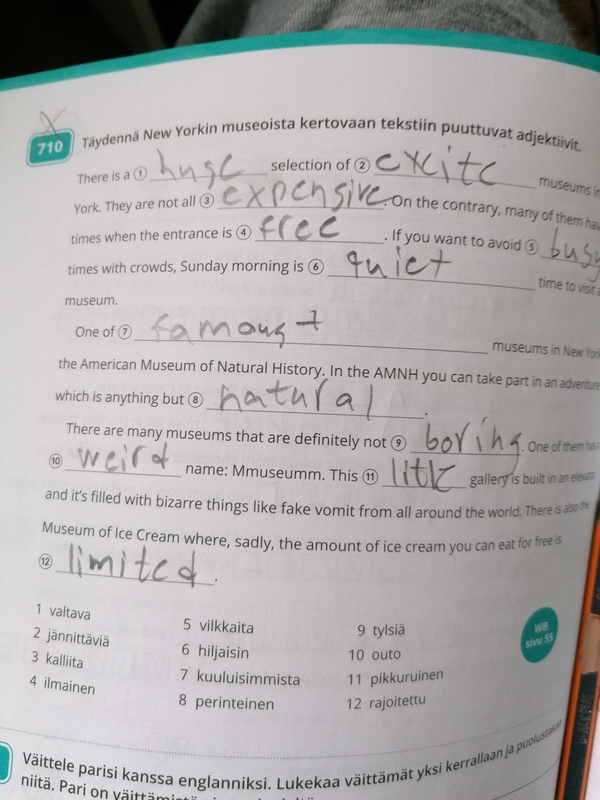 710 Täydennä New Yorkin museoista kertovaan tekstiin puuttuvat adjektiivit.
There is a ① huge selection of ② excite museums in
York. They are not all ③ expensive. On the contrary, many of them have
times when the entrance is ④ free. If you want to avoid ⑤ busy
times with crowds, Sunday morning is ⑥ quiet time to visit a
museum.
One of ⑦ famoust museums in New York
the American Museum of Natural History. In the AMNH you can take part in an adventure
which is anything but ⑧ natural.
There are many museums that are definitely not ⑨ boring. One of them has a
⑩ weird name: Mmuseumm. This ⑪ litle gallery is built in an elevator
and it's filled with bizarre things like fake vomit from all around the world. There is also the
Museum of Ice Cream where, sadly, the amount of ice cream you can eat for free is
⑫ limited.
1 valtava 5 vilkkaita 9 tylsiä
2 jännittäviä 6 hiljaisin 10 outo
3 kalliita 7 kuuluisimmista 11 pikkuruinen
4 ilmainen 8 perinteinen 12 rajoitettu
WB
sivu 55
Väittele parisi kanssa englanniksi. Lukekaa väittämät yksi kerrallaan ja puolustakaa
niitä. Pari on